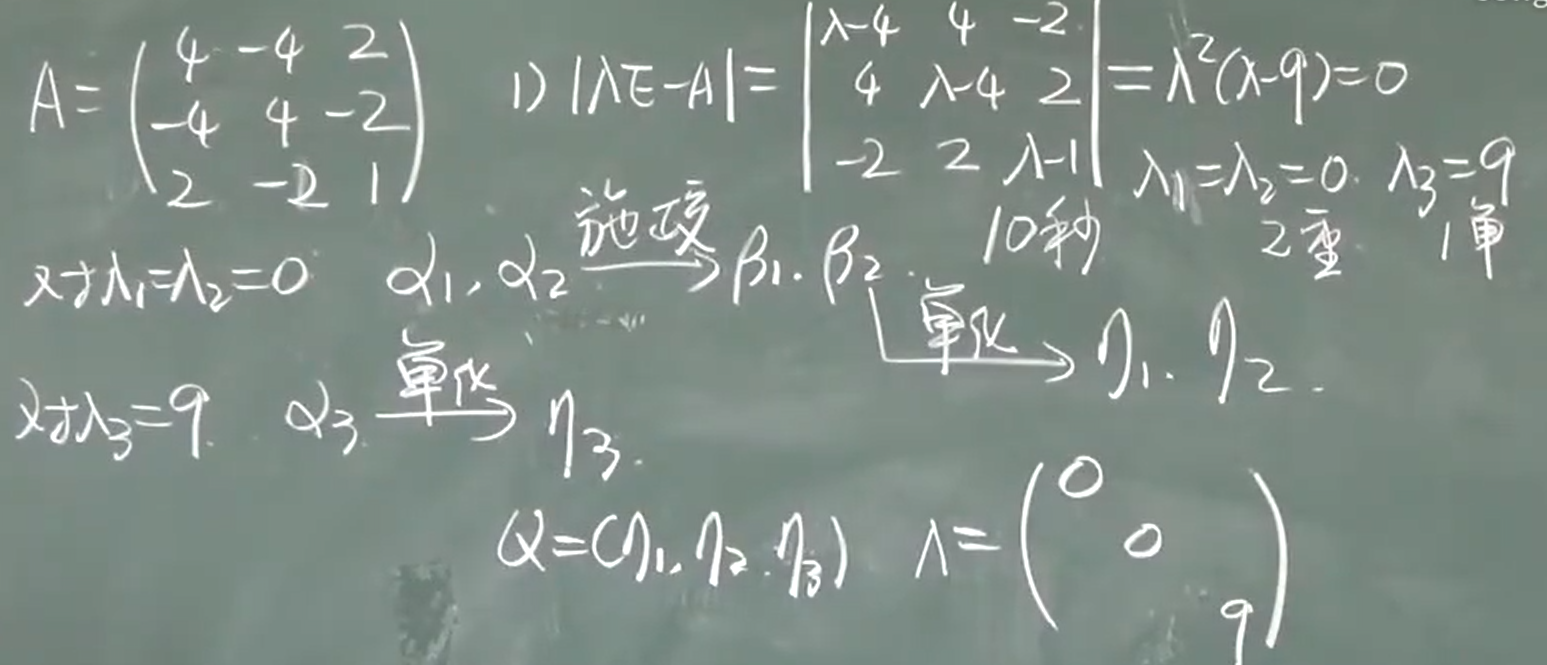 A=(4 -4 2
-4 4 -2
2 -2 1)
1) |λE-A|=|λ-4 4 -2
4 λ-4 2
-2 2 λ-1|=λ²(λ-9)=0
λ₁=λ₂=0. λ₃=9
10秒 2重 1单
对λ₁=λ₂=0 α₁, α₂ 施密→ β₁. β₂. 单化→ η₁. η₂.
对λ₃=9. α₃. 单化→ η₃.
Q=(η₁, η₂. η₃) Λ=(0
0
9)